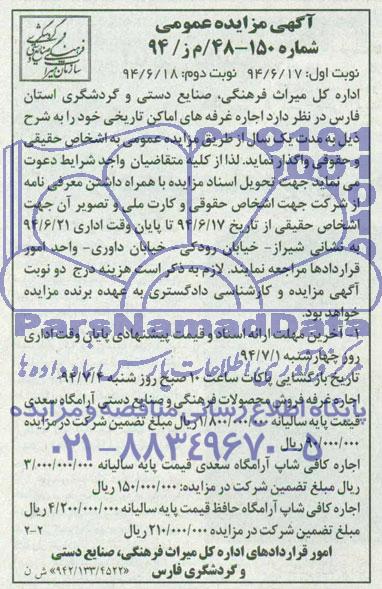 آگهی مزایده عمومی
شماره ۱۵۰-۴۸/م ز/ ۹۴
نوبت اول: ۹۴/۶/۱۷ نوبت دوم: ۹۴/۶/۱۸
اداره کل میراث فرهنگی، صنایع دستی و گردشگری استان
فارس در نظر دارد اجاره غرفه های اماکن تاریخی خود را به شرح
ذیل به مدت یک سال از طریق مزایده عمومی به اشخاص حقیقی
و حقوقی واگذار نماید. لذا از کلیه متقاضیان واجد شرایط دعوت
می نماید جهت تحویل اسناد مزایده با همراه داشتن معرفی نامه
از شرکت جهت اشخاص حقوقی و کارت ملی و تصویر آن جهت
اشخاص حقیقی از تاریخ ۹۴/۶/۱۷ تا پایان وقت اداری ۹۴/۶/۲۱
به نشانی شیراز- خیابان رودکی- خیابان داوری- واحد امور
قراردادها مراجعه نمایند. لازم به ذکر است هزینه درج دو نوبت
آگهی مزایده و کارشناسی دادگستری به عهده برنده مزایده
خواهد بود.
آخرین مهلت ارائه اسناد و قیمت پیشنهادی پایان وقت اداری
روز چهارشنبه ۹۴/۷/۱
تاریخ بازگشایی پاکات ساعت ۱۰ صبح روز شنبه ۹۴/۷/۴
اجاره غرفه فروش محصولات فرهنگی و صنایع دستی آرامگاه سعدی
قیمت پایه سالیانه ۱/۸۰۰/۰۰۰/۰۰۰ ریال مبلغ تضمین شرکت در مزایده
۹۰/۰۰۰/۰۰۰ ریال
اجاره کافی شاپ آرامگاه سعدی قیمت پایه سالیانه ۳/۰۰۰/۰۰۰/۰۰۰
ریال مبلغ تضمین شرکت در مزایده: ۱۵۰/۰۰۰/۰۰۰ ریال
اجاره کافی شاپ آرامگاه حافظ قیمت پایه سالیانه ۴/۲۰۰/۰۰۰/۰۰۰ ریال
مبلغ تضمین شرکت در مزایده ۲۱۰/۰۰۰/۰۰۰ ریال ۲-۲
امور قراردادهای اداره کل میراث فرهنگی، صنایع دستی
و گردشگری فارس
«۹۴۲/۱۳۳/۴۵۲۲» ش ن
ParsNamadData
پایگاه اطلاع رسانی مناقصه و مزایده
۰۲۱-۸۸۳۴۹۶۷۰-۵